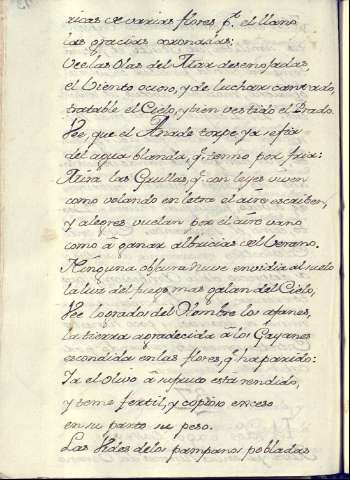 ricas de varias flores p.r el llano
las gracias coronadas:
Vee las olas del Mar desenojadas,
el Viento ocioso, y de luchar cansado,
tratable el Cielo, y bien vestido el Prado.
Vee, que el Anade torpe ya se fia
del agua blanda, q. temio por fria:
Mira las Grullas, q. con leyes viven
como volando en letra el aire escriben,
y alegres vuelan por el aire vano
como â ganar albricias del Verano.
Ninguna obscura nuve envidia al suelo
la luz del fuego mas galan del Cielo,
Vee logrados del Hombre los afanes,
la tierra agradecida â los Gayanes
escondida en las flores, q. ha parido:
Ya el olivo â su fruto está rendido,
y teme fertil, y copioso exceso
en su parto su peso.
Las Vides de los pampanos pobladas